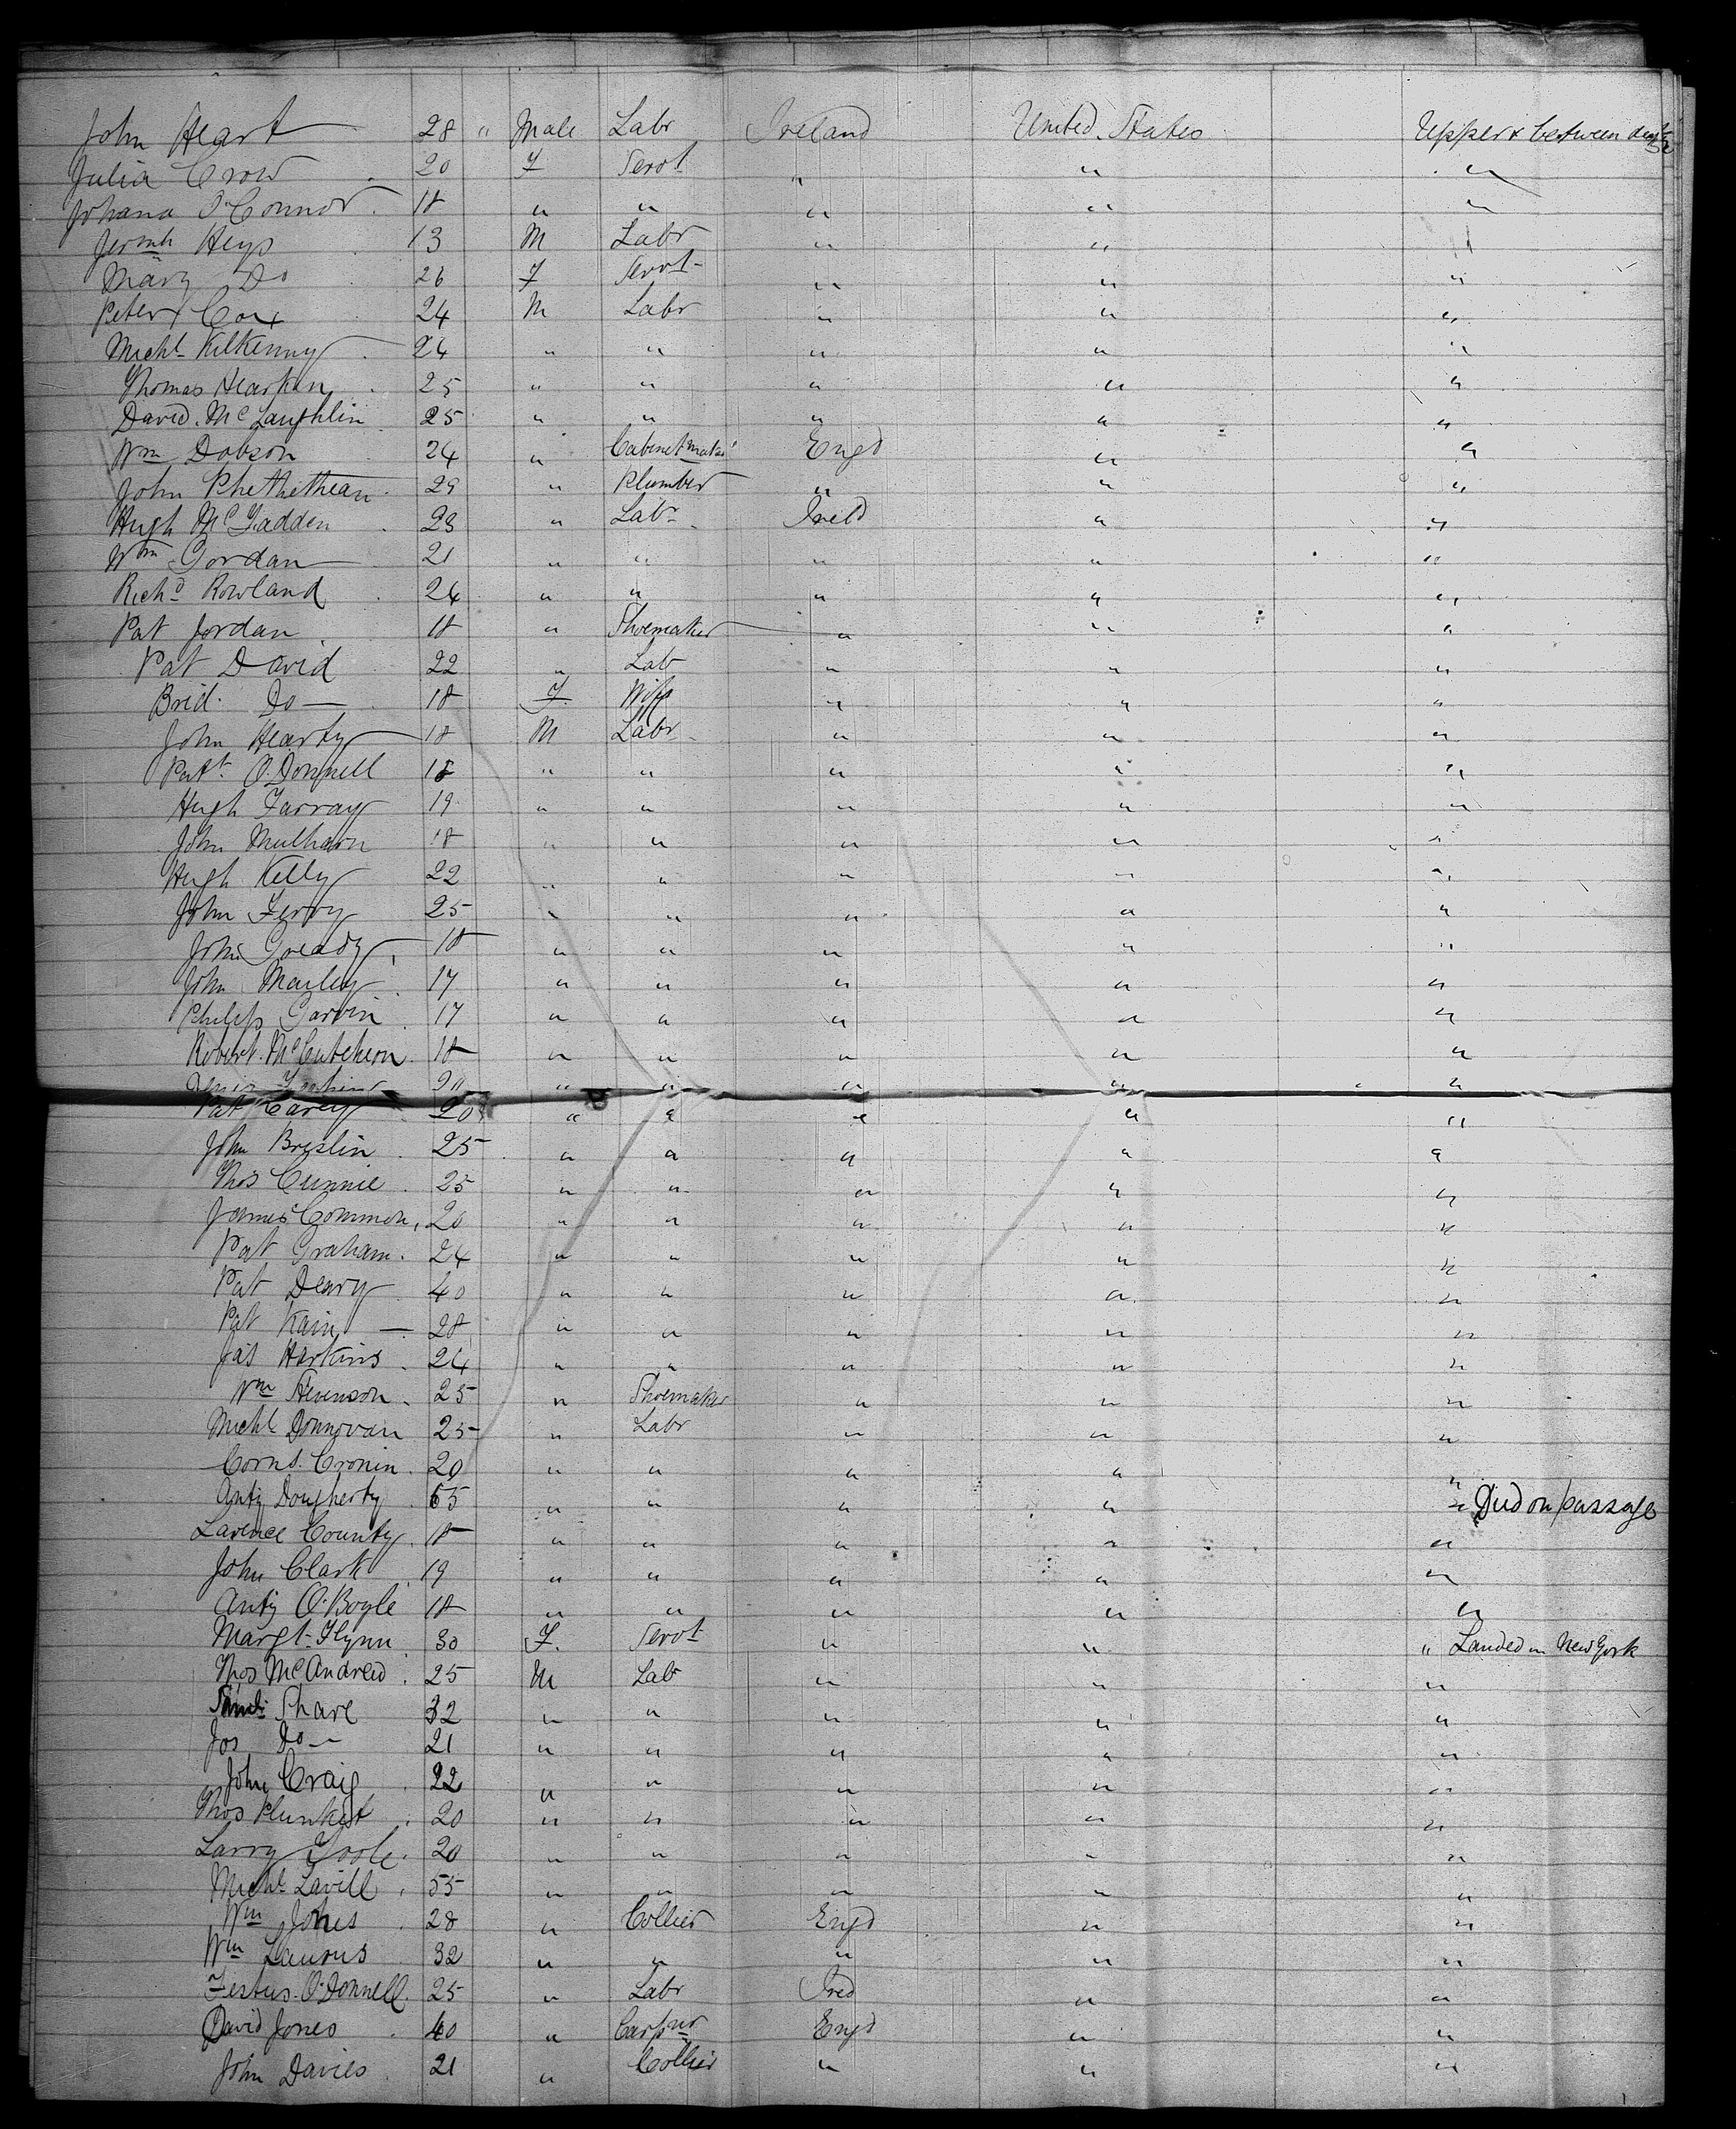 John Heart 28 " Male Labr Ireland United States Upper & between decks
Julia Crow 20 F Servt " " "
Johana O'Connor 18 " " " " "
Jermh Heys 13 M Labr " " "
Mary Do 26 F Servt " " "
Peter Cox 24 M Labr " " "
Michl Kilkenny 24 " " " " "
Thomas Hearken 25 " " " " "
David McLaughlin 25 " " " " "
Wm Dobson 24 " Cabinetmaker Engd " "
John 29 " Plumber " " "
Hugh McFadden 23 " Labr Ireld " "
Wm Gordan 21 " " " " "
Richd Rowland 24 " " " " "
Pat Jordan 18 " Shoemaker " " "
Pat David 22 " Lab " " "
Brid. Do 18 F Wife " " "
John Hearty 18 M Labr " " "
Patt. O'Donnell 18 " " " " "
Hugh Farray 19 " " " " "
John Mulhearn 18 " " " " "
Hugh Kelly 22 " " " " "
John Ferry 25 " " " " "
John Gready 18 " " " " "
John Marley 17 " " " " "
Philip Garvin 17 " " " " "
Robert McCutcheon 18 " " " " "
20 " " " " "
Pat Carey 20 " " " " "
John Breslin 25 " " " " "
Thos Cunnie 25 " " " " "
James Common 20 " " " " "
Pat Graham 24 " " " " "
Pat Deary 40 " " " " "
Pat Kain 28 " " " " "
Jas Harkins 24 " " " " "
Wm Stevenson 25 " Shoemaker " " "
Michl Donnovan 25 " Labr " " "
Corns. Cronin 20 " " " " "
Anty Dougherty 65 " " " " " Died on passage
Larence County 18 " " " " "
John Clark 19 " " " " "
Anty O'Boyle 18 " " " " "
Margt Flynn 30 F. Servt " " " Landed in New York
Thos McAndrew 25 M Lab " " "
Saml Share 32 " " " " "
Jos Do 21 " " " " "
John Craig 22 " " " " "
Thos Plunket 20 " " " " "
Larry Toole 20 " " " " "
Michl Lavill 55 " " " " "
Wm Jones 28 " Collier Engd " "
Wm Laurus 32 " " " " "
Festus O'Donnell 25 " Labr Ired " "
David Jones 40 " Carpnr Engd " "
John Davies 21 " Collier " " "